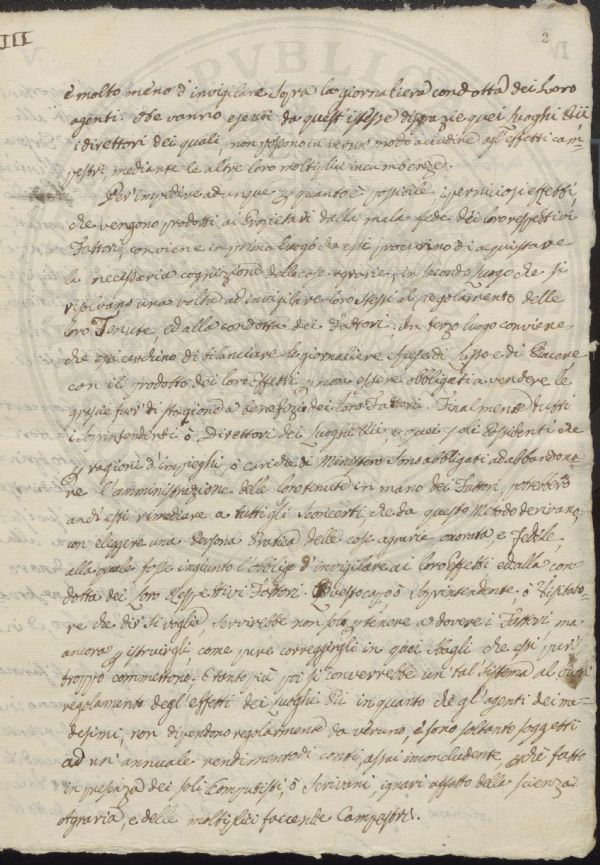 III
2
e molto meno d'invigilare sopra la giornaliera condotta dei loro
agenti. Ne vanno esenti da quest'istesse disgrazie quei luoghi Pii
i direttori dei quali non possono in verun modo accudire agl'effetti cam-
pestri mediante le altre loro moltiplici incumbenze.
Per impedire adunque p quanto è possibile i perniciosi effetti,
che vengono prodotti ai Proprietarii dalla mala fede dei loro respettivi
Fattori, conviene in primo luogo che essi procurino di acquistare
la necessaria cognizione delle cose agrarie, in secondo luogo che si
risolvano una volta ad invigilare loro stessi al regolamento delle
loro Tenute, ed alla condotta dei Fattori. In terzo luogo conviene
che essi cerchino di bilanciare le giornaliere spese di lusso e di Piacere
con il prodotto dei loro Effetti p non essere obbligati a vendere le
grascie fuor di stagione a benefizio dei loro Fattori. Finalmente tutti
i soprintendenti ò Direttori dei luoghi Pii, e quei Possidenti che
p ragioni d'impieghi, ò cariche di Ministero sono abbligati ad abbandona-
re l'amministrazione delle loro tenute in mano dei Fattori, potrebbero
anch'essi rimediare a tutti gli sconcerti che da questo Metodo derivano,
con eleggere una Persona Pratica delle cose agrarie onorata e fedele,
alla quale fosse ingiunto l'obbligo d'invigilare ai loro Effetti ed alla con-
dotta dei loro respettivi Fattori. Questo capo ò soprintendente, ò Visitato-
re che dir si voglia, servirebbe non solo p tenere a dovere i Fattori ma
ancora p istruirgli, come pure correggirgli in quei sbagli che essi pur
troppo commettono. E tanto più poi si converrebbe un tal sistema al
regolamento degl'effetti dei luoghi Pii in quanto che gl'agenti dei me-
desimi, non dipendono regolarmente da veruno, e sono soltanto soggetti
ad un'annuale rendimento di conti, assai inconcludente, perché fatto
in presenza dei soli Computisti, ò Scrivani, ignari affatto della scienza
Agraria, e delle moltiplici faccende Campestri.